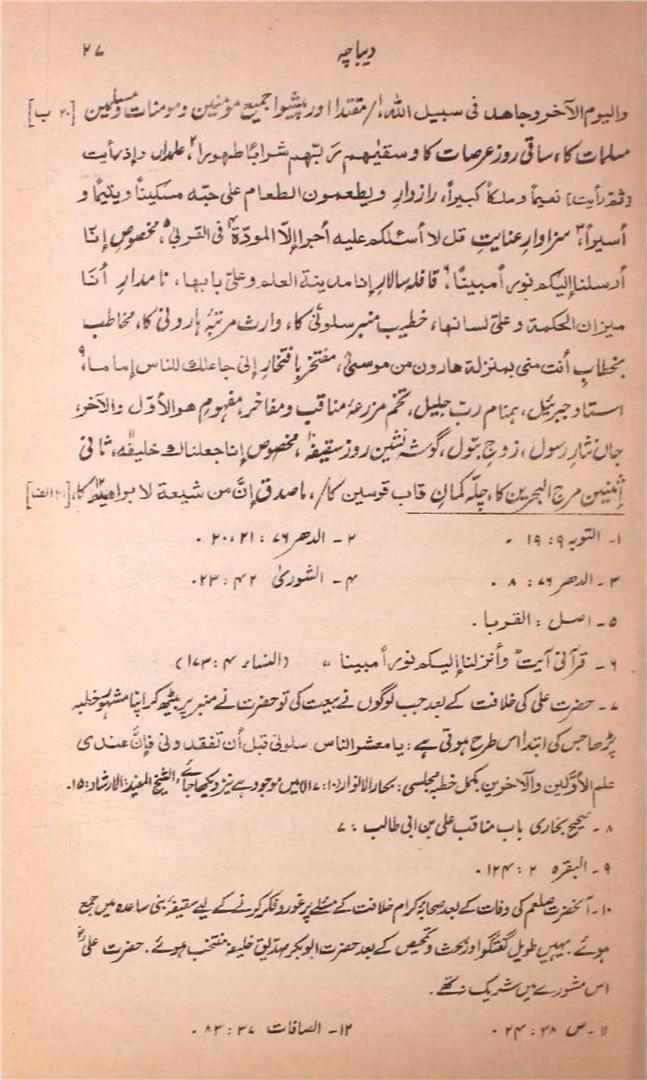 دیباچہ ۲۷
والیوم الآخر وجاهد فی سبیل اللہ،۱/ مقتدا اور پیشوا جمیع مؤمنین و مومنات و مسلمین [۲۰ ب]
مسلمات کا، ساقی روز عرصات کا و سقیٰهم ربّهم شرابًا طهورا،۲ علمدار و إذ رأیت
و ثمّ رأیت، نعیماً و ملکاً کبیراً، رازدار و یطعمون الطعام علی حبّه مسکیناً و یتیماً و
أسیراً،۳ سزاوارِ عنایتِ قل لا أسئلکم علیه أجرا إلّا المودّة۴ فی القربیٰ،۵ مخصوصِ إنّا
أرسلنا إلیکم نوراً مبینًا،۶ قافلہ سالارِ إنا مدینة العلم و علیّ بابها، نامدارِ أنا
میزان الحکمة و علیّ لسانها، خطیب منبر سلونی۷ کا، وارث مرتبۂ ہارونی کا، مخاطب
بخطابِ أنت منی بمنزلة هارون من موسیٰ،۸ مفتخر بافتخارِ إنّی جاعلک للناس إماما،۹
استادِ جبرئیل، ہمنام ربّ جلیل، تخم مزرعۂ مناقب و مفاخر، مفہوم هو الأوّل والآخر،
جاں نثارِ رسول، زوجِ بتول، گوشہ نشینِ روز سقیفہ،۱۰ مخصوص إنا جعلناك خلیفه،۱۱ ثانی
إثنین مرج البحرین کا، چلّہ کمانِ قاب قوسین کا/، ماصدقِ إنَّ من شیعة لابراهیم۱۲ کا، [۲۱ الف]
۱۔ التوبہ ۹ : ۱۹ ۔ ۲۔ الدھر ۷۶ : ۲۰،۲۱ ۔
۳۔ الدھر ۷۶ : ۸ ۔ ۴۔ الشوریٰ ۴۲ : ۲۳ ۔
۵۔ اصل : القربا ۔
۶۔ قرآنی آیت و أنزلنا إلیکم نوراً مبینا " (النساء ۴ : ۱۷۳)
۷۔ حضرت علی کی خلافت کے بعد جب لوگوں نے بیعت کی تو حضرت نے منبر پر بیٹھ کر اپنا مشہور خطبہ
پڑھا جس کی ابتدا اس طرح ہوتی ہے : یا معشر الناس سلونی قبل أن تفقدونی فإنَّ عندی
علم الأوّلین والآخرین مکمل خطبہ مجلسی : بحار الانوار (۱۰ : ۱۱۷) میں موجود ہے نیز دیکھا جائے، الشیخ المفید : الارشاد : ۱۵۔
۸۔ صحیح بخاری باب مناقب علی بن ابی طالب : ۷
۹۔ البقرہ ۲ : ۱۲۴ ۔
۱۰۔ آنحضرت صلعم کی وفات کے بعد صحابۂ کرام خلافت کے مسئلے پر غور و فکر کرنے کے لیے سقیفۂ بنی ساعدہ میں جمع
ہوئے ۔ یہیں طویل گفتگو اور بحث و تمحیص کے بعد حضرت ابوبکر صدیق خلیفہ منتخب ہوئے ۔ حضرت علیؓ
اس مشورے میں شریک نہ تھے ۔
۱۱۔ ص ۳۸ : ۲۴ ۔ ۱۲۔ الصافات ۳۷ : ۸۳ ۔